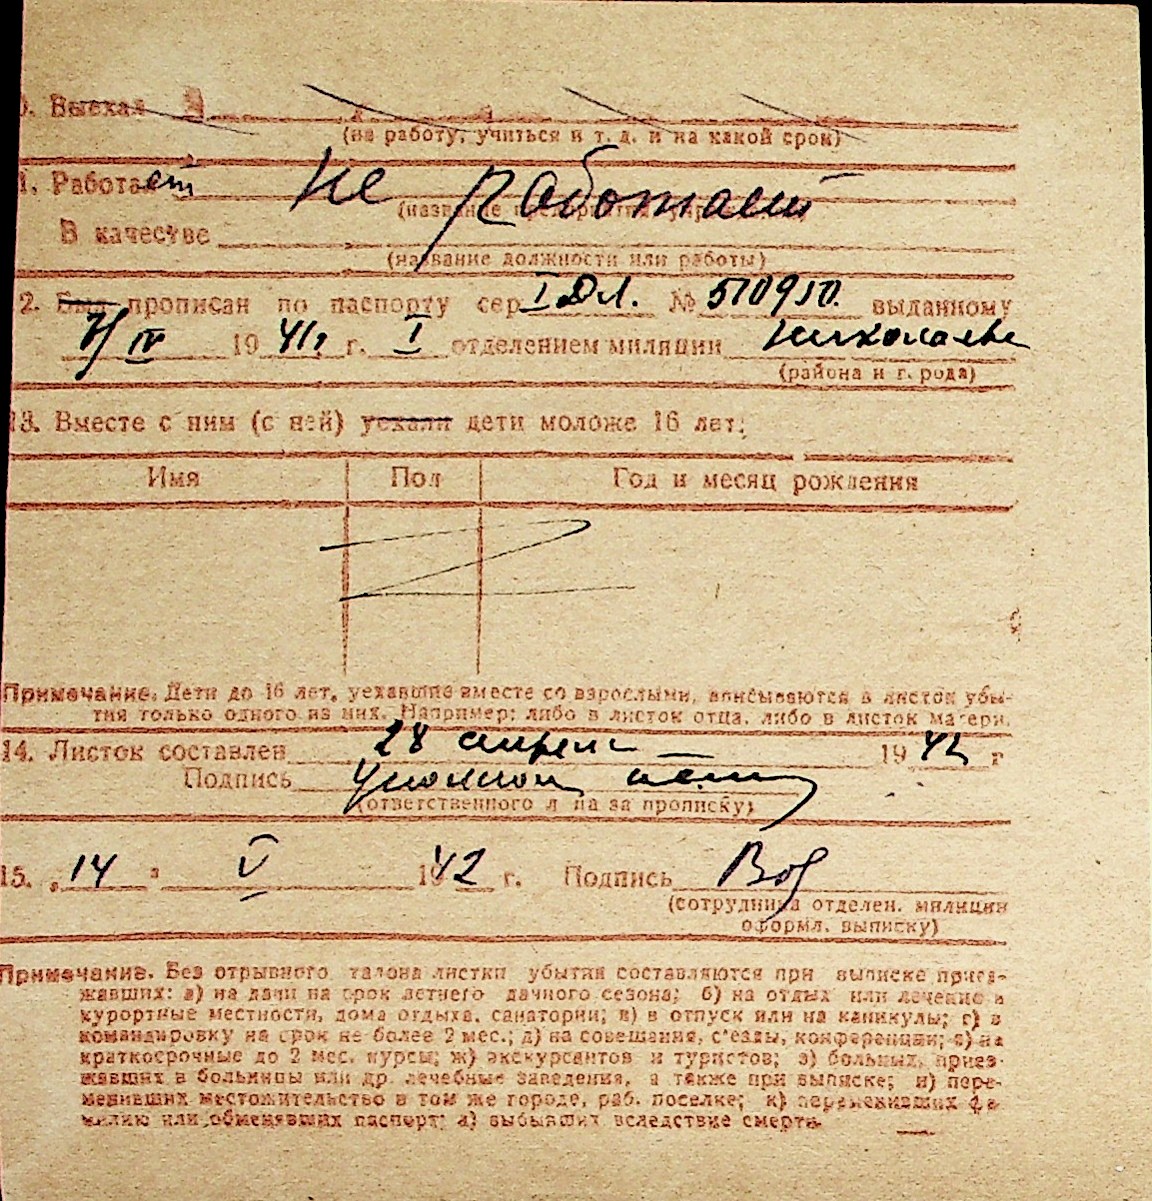 0. Выехал в
(на работу, учиться и т. д. и на какой срок)
1. Работает не работает
(название предприятия, учр
В качестве
(название должности или работы)
2. Был прописан по паспорту сер. I ДЛ. № 510910. выданному
7/IV 1941 г. I отделением милиции Николаева
(района и города)
13. Вместе с ним (с ней) уехали дети моложе 16 лет:
Имя Пол Год и месяц рождения
Примечание. Дети до 16 лет, уехавшие вместе со взрослыми, вписываются в листок убы-
тия только одного из них. Например: либо в листок отца, либо в листок матери.
14. Листок составлен 28 апреля 1942 г
Подпись
(ответственного лица за прописку)
15. „14" V 1942 г. Подпись
(сотрудника отделен. милиции
оформл. выписку)
Примечание. Без отрывного талона листки убытия составляются при выписке приез-
жавших: а) на дачи на срок летнего дачного сезона; б) на отдых или лечение в
курортные местности, дома отдыха, санатории; в) в отпуск или на каникулы; г) в
командировку на срок не более 2 мес.; д) на совещания, с'езды, конференции; е) на
краткосрочные до 2 мес. курсы; ж) экскурсантов и туристов; з) больных, приез-
жавших в больницы или др. лечебные заведения, а также при выписке; и) пере-
менивших местожительство в том же городе, раб. поселке; к) переменивших фа-
милию или обменявших паспорт; л) выбывших вследствие смерти.